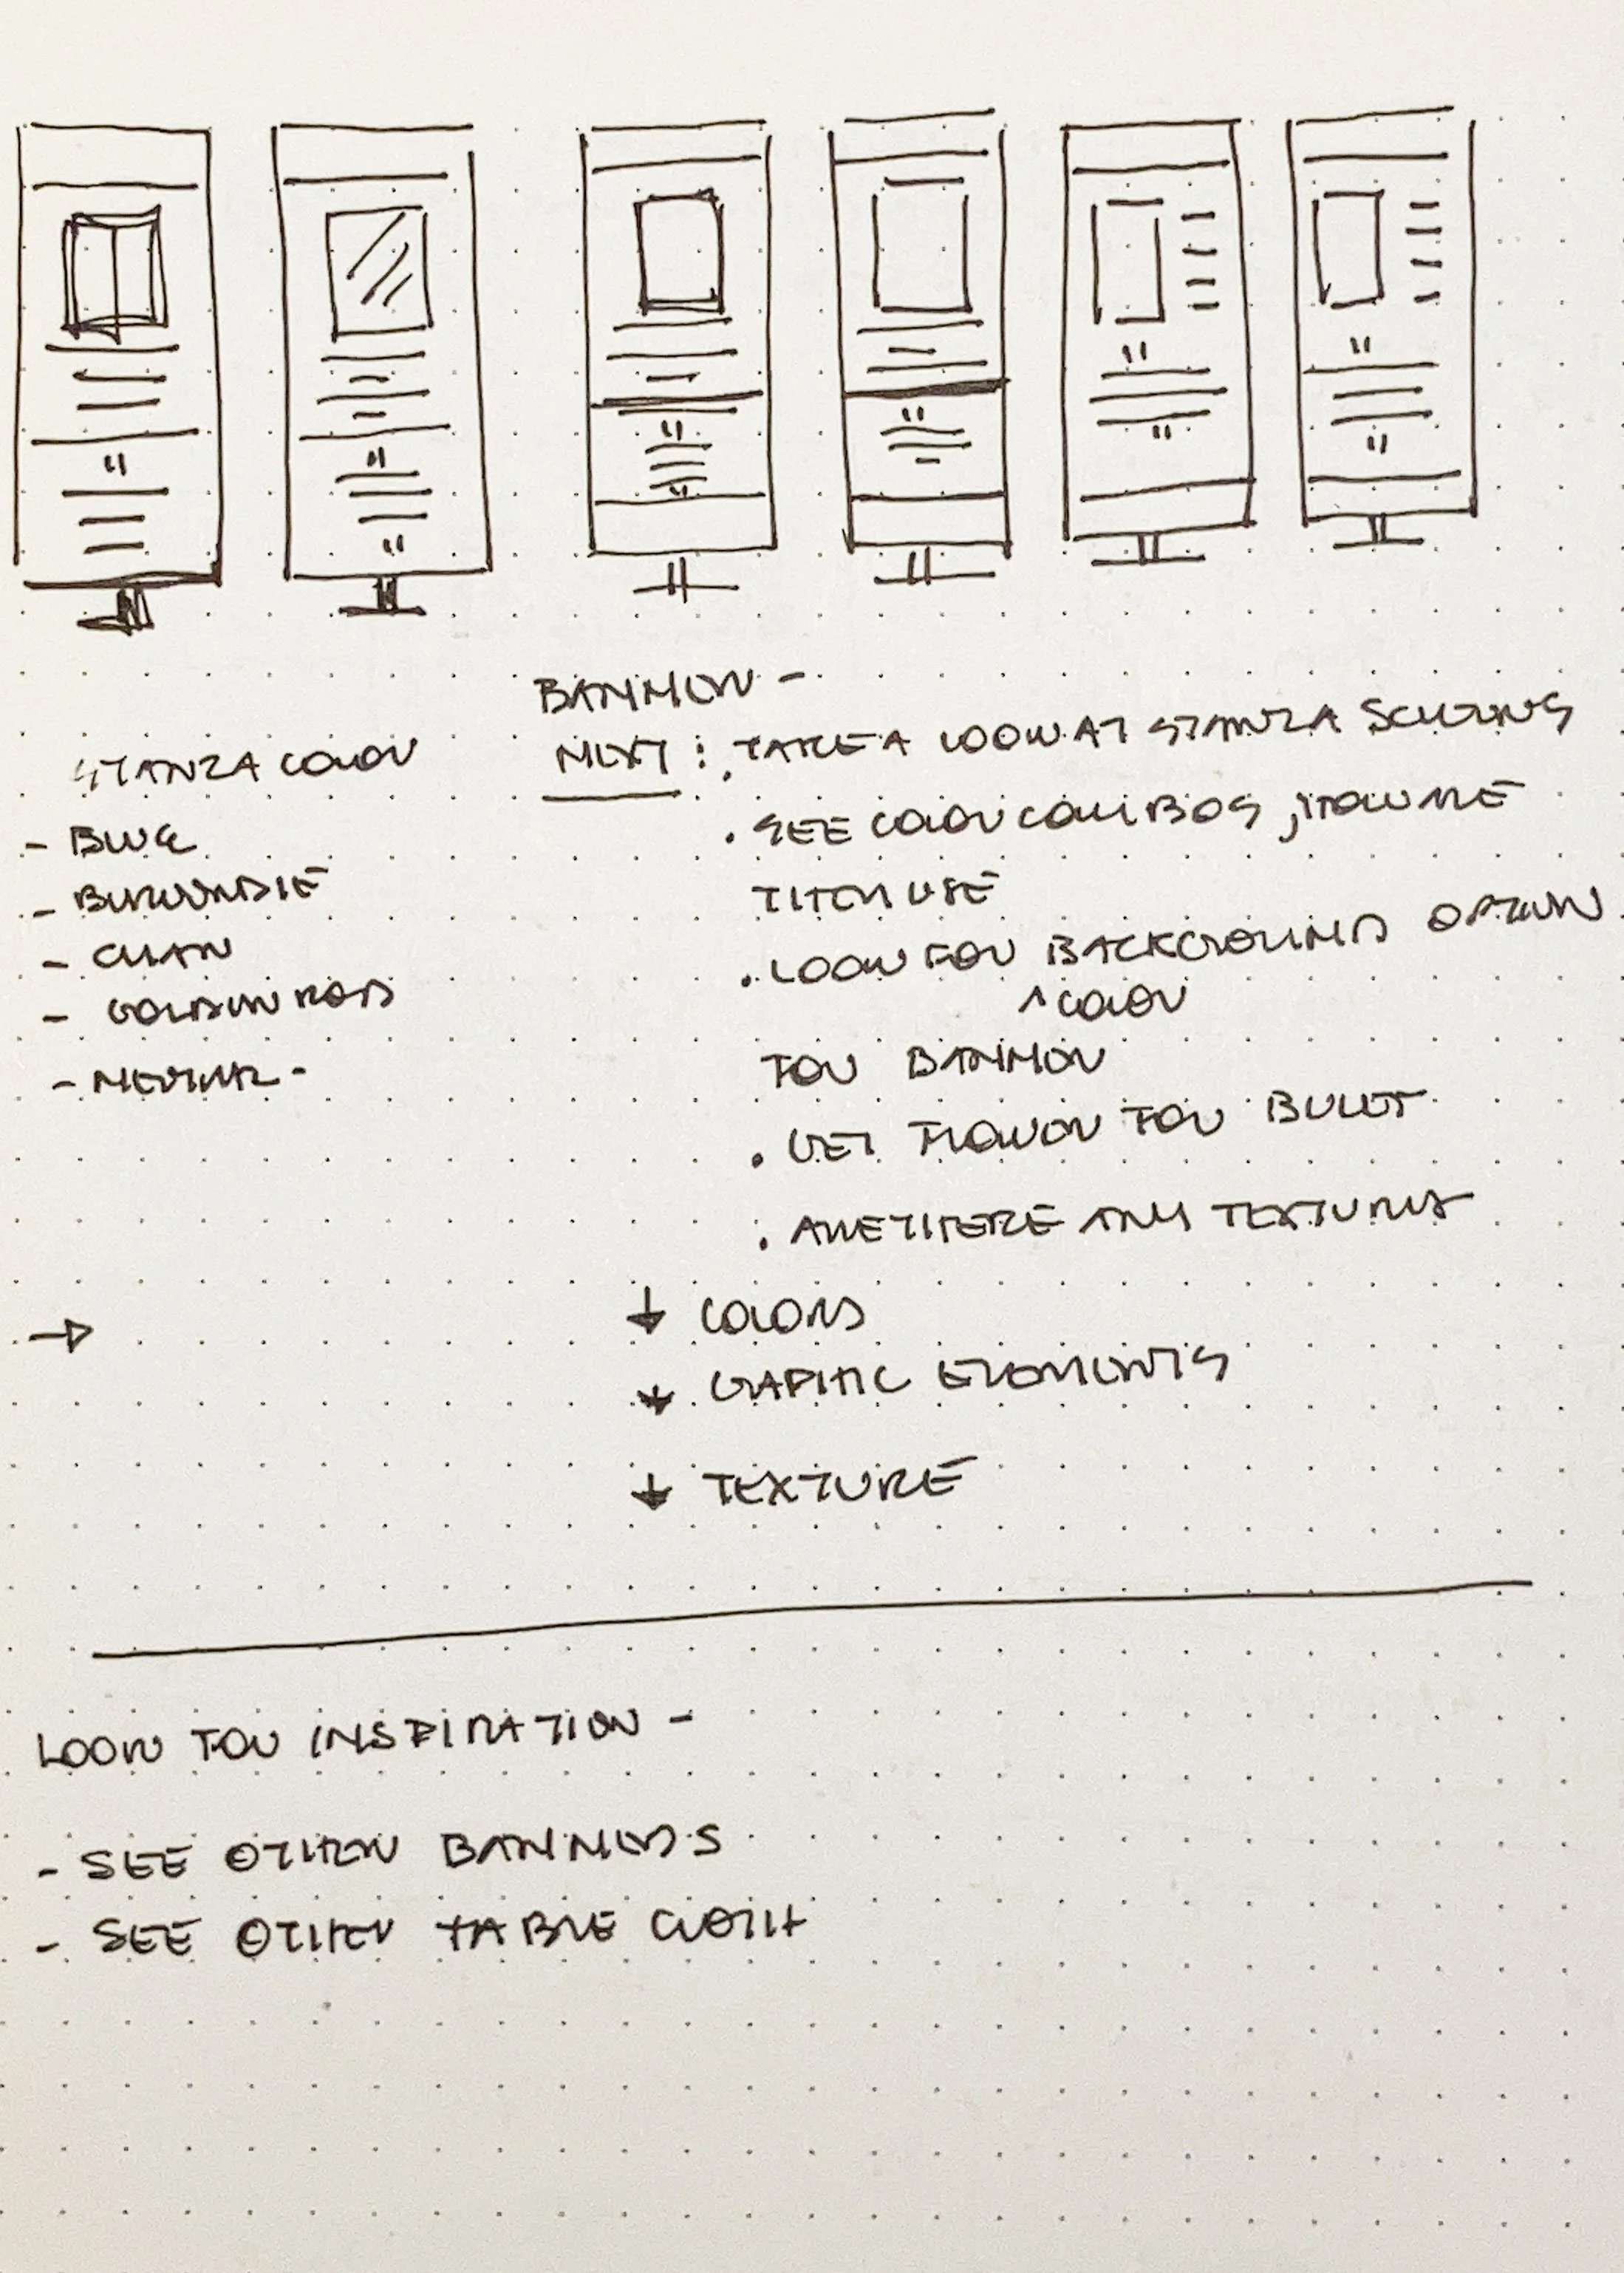 BANNER -
STANZA COLOR
- BLUE
- BURGUNDIE
- CYAN
- GOLDEN ROD
- NEUTRAL -
NEXT : . TAKE A LOOK AT STANZA
. SEE COLOR COMBOS, HOW ARE
THEY USE
. LOOK FOR BACKGROUND OPTION
^ COLOR
FOR BANNER
. GET FLOWER FOR BULLET
. ARE THERE ANY TEXTURES
→
↓ COLORS
↓ GRAPHIC ELEMENTS
↓ TEXTURE
LOOK FOR INSPIRATION -
- SEE OTHER BANNERS
- SEE OTHER TABLE CLOTH